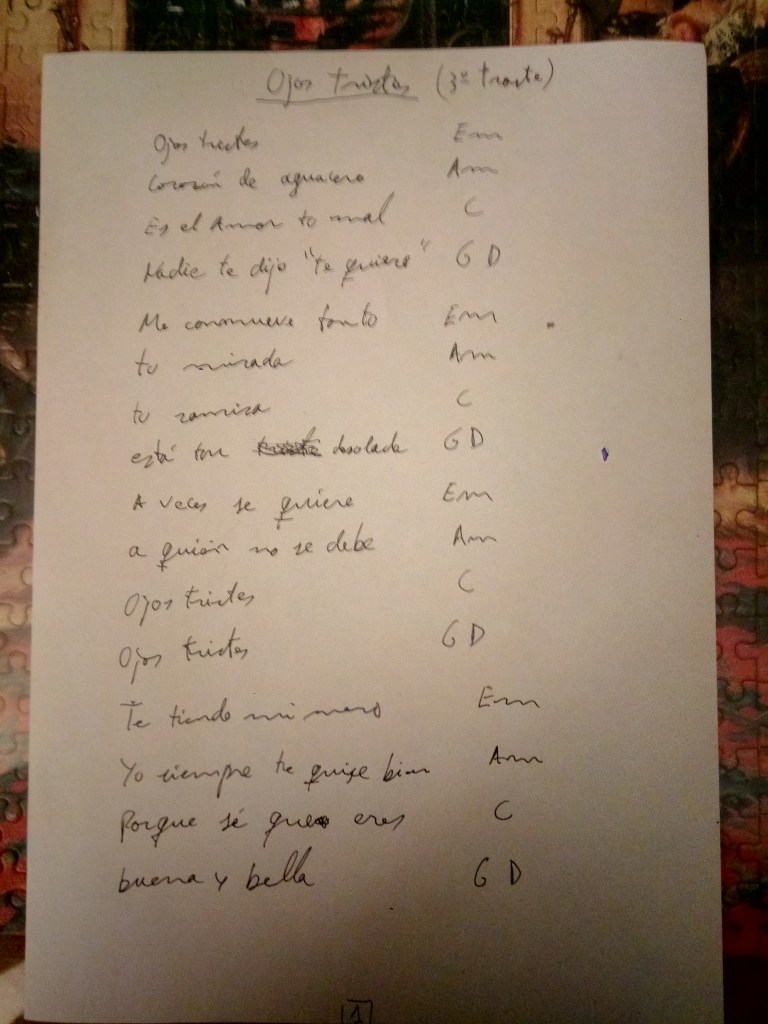 Ojos tristes (3º traste)
Ojos tristes Em
Corazón de aguacero Am
Es el Amor tu mal C
Nadie te dijo "te quiero" G D
Me conmueve tanto Em
tu mirada Am
tu sonrisa C
está tan desolada G D
A veces se quiere Em
a quién no se debe Am
Ojos tristes C
Ojos tristes G D
Te tiendo mi mano Em
Yo siempre te quise bien Am
Porque sé que eres C
buena y bella G D
1